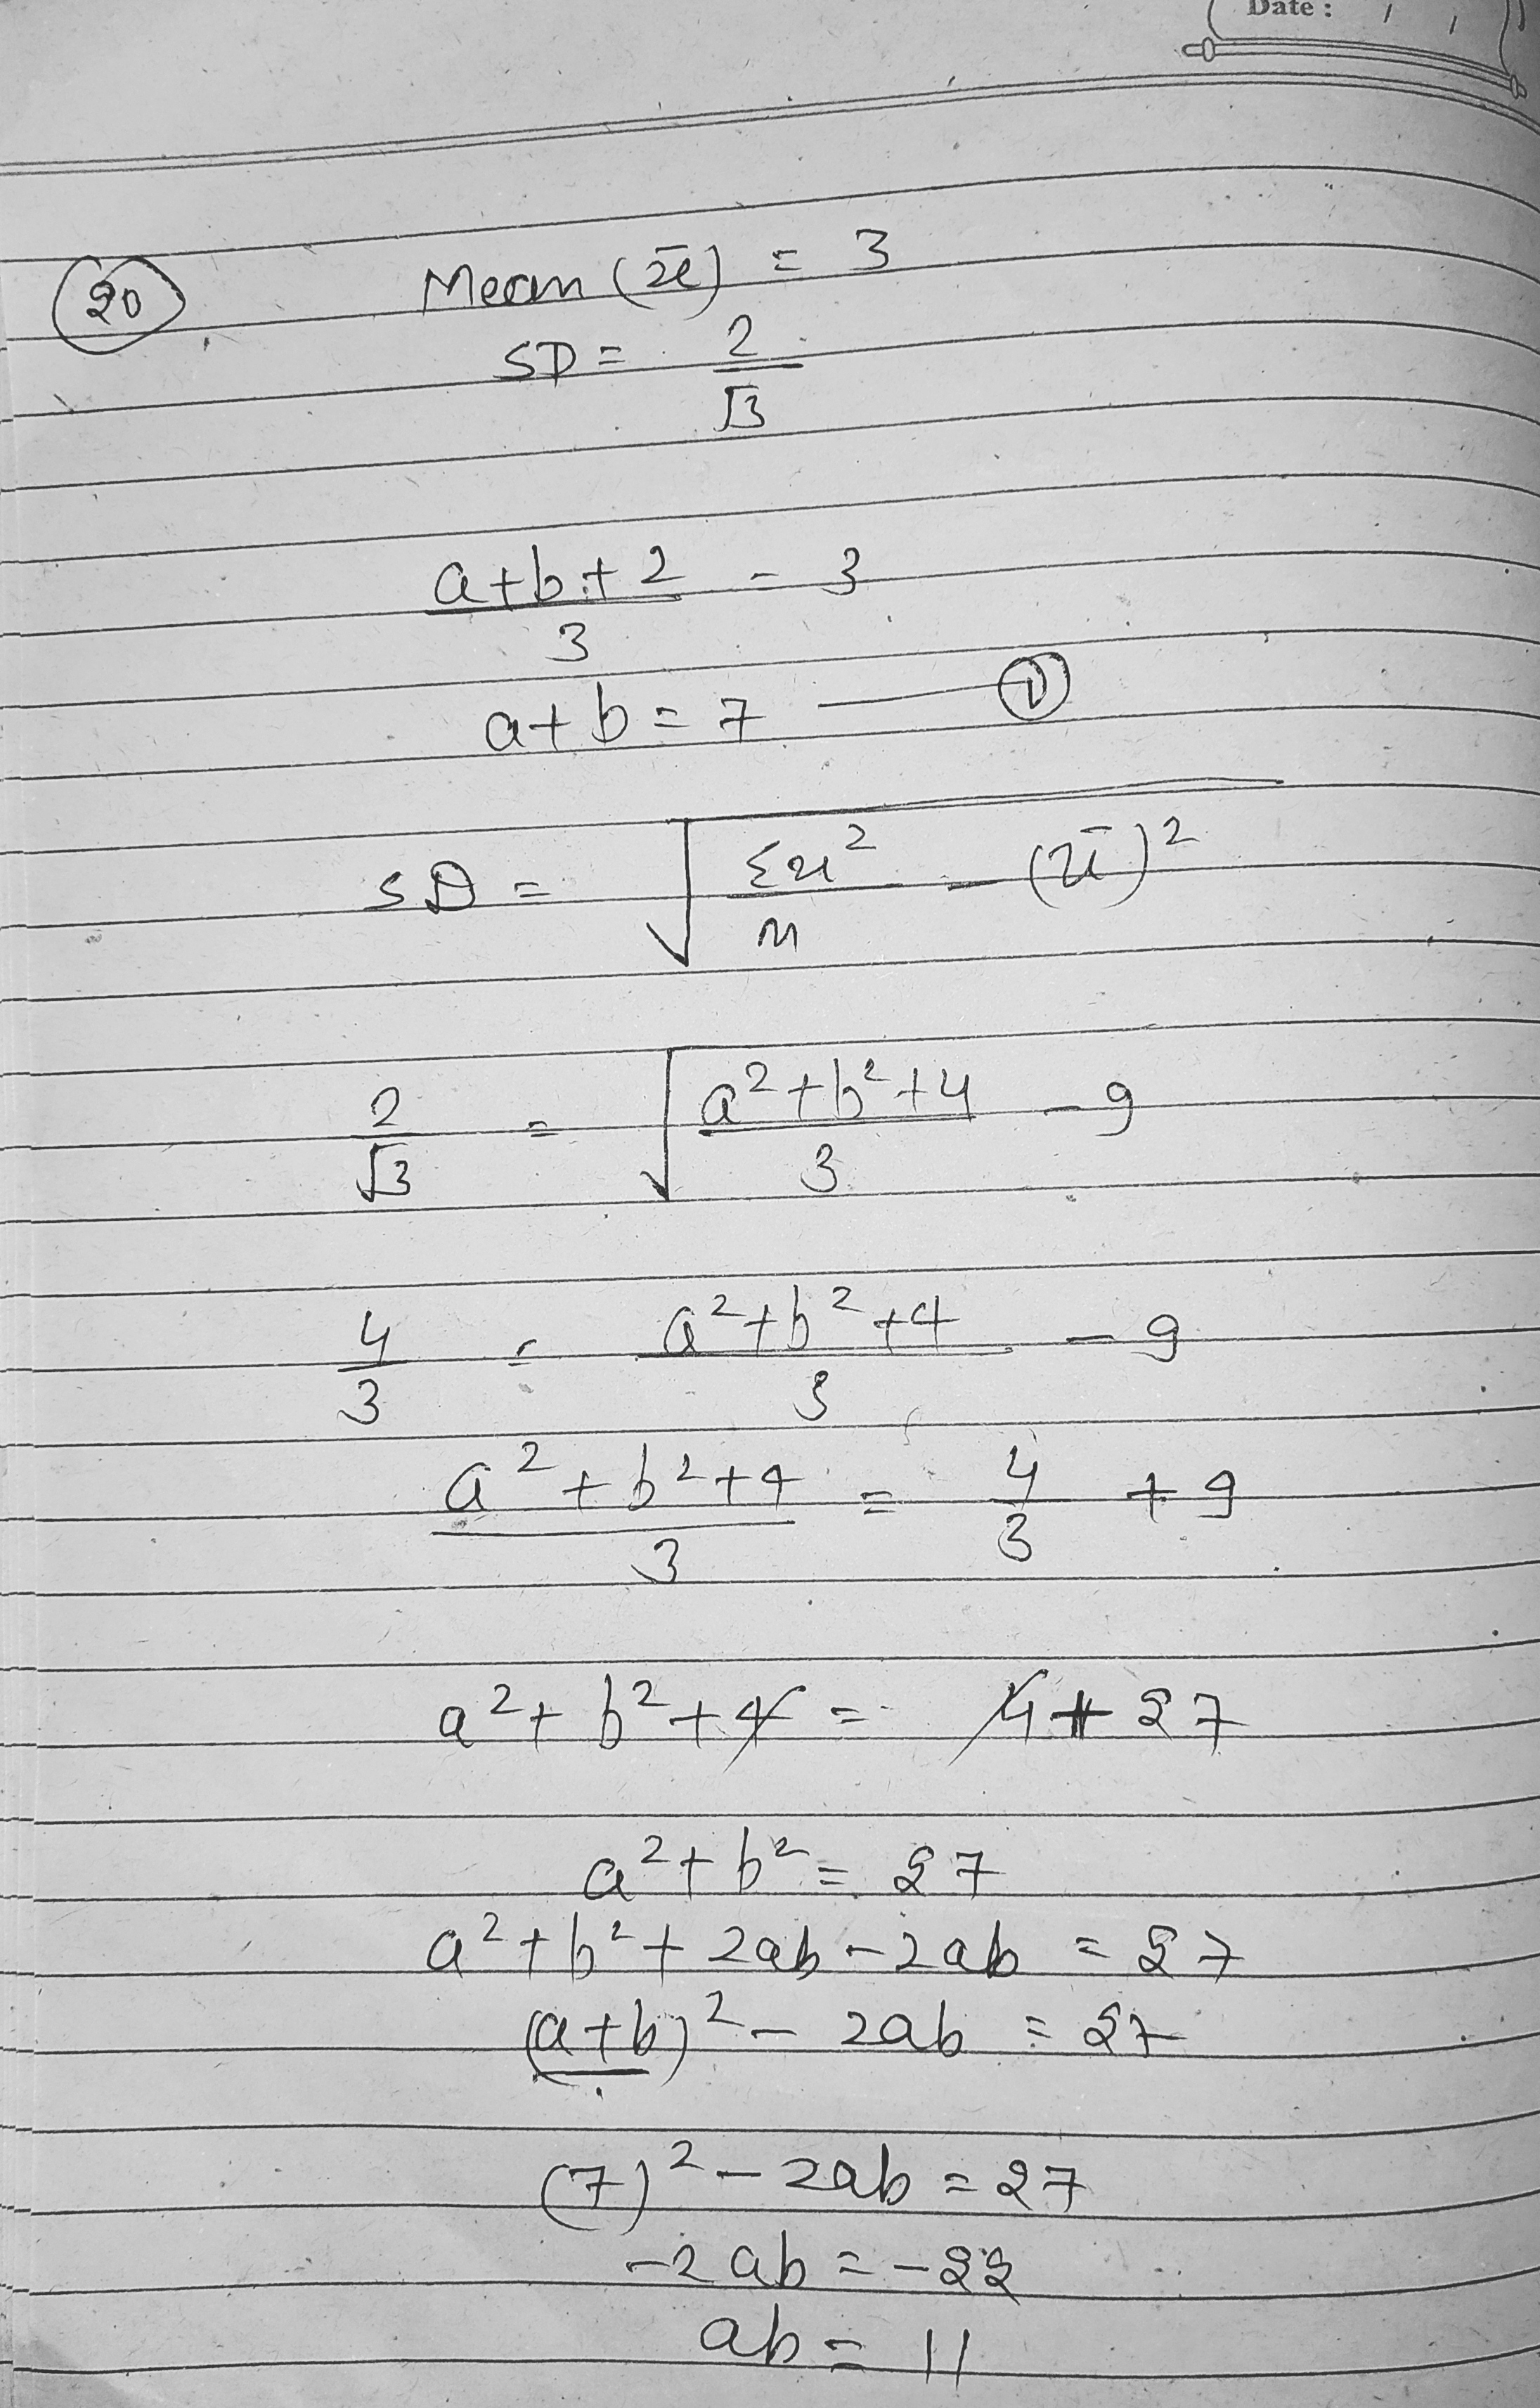 Date : / /
20 Mean (x̄) = 3
SD = 2/√3
(a+b+2)/3 = 3
a+b = 7 — ①
SD = √(Σx²/n - (x̄)²)
2/√3 = √((a²+b²+4)/3 - 9)
4/3 = (a²+b²+4)/3 - 9
(a²+b²+4)/3 = 4/3 + 9
a²+b²+4 = 4+27
a²+b² = 27
a²+b²+2ab-2ab = 27
(a+b)² - 2ab = 27
(7)² - 2ab = 27
-2ab = -22
ab = 11